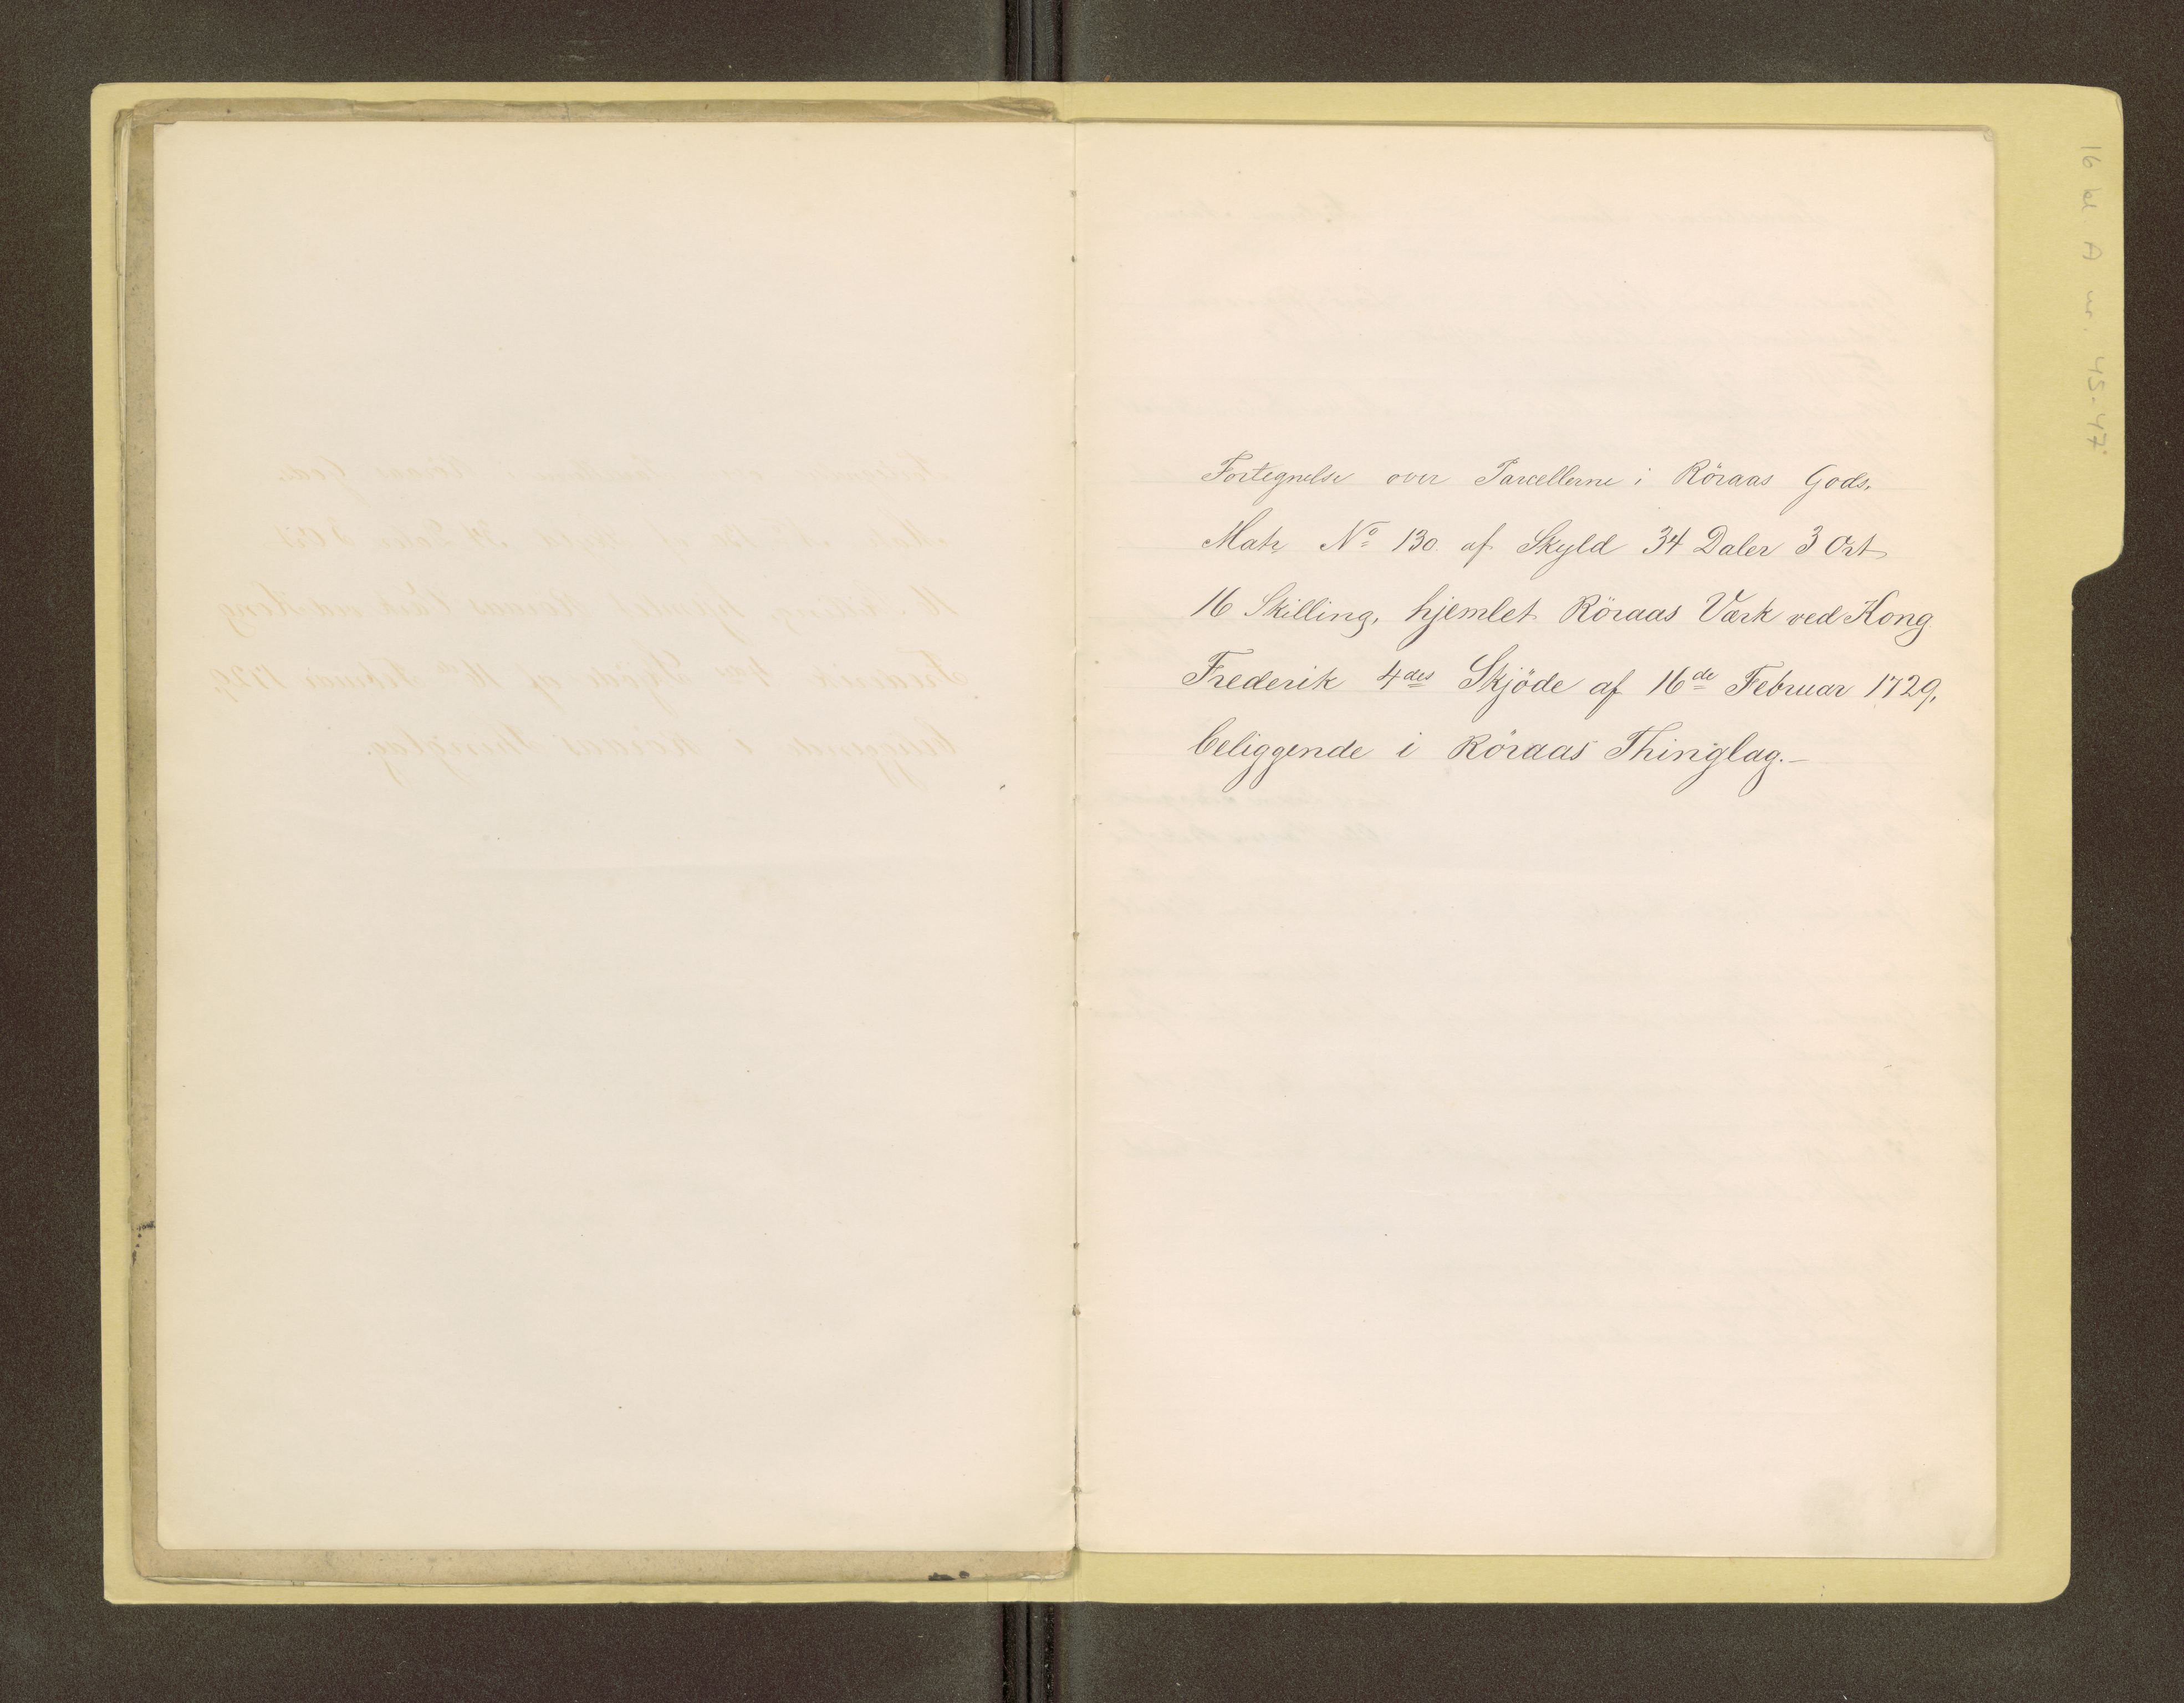 Fortegnelse over Parcellerne i Röraas Gods.
Matr Nº 130. af Skyld 34 Daler 3 Ort
16 Skilling, hjemlet Röraas Værk ved Kong
Frederik 4des Skjöde af 16de Februar 1729,
beliggende i Röraas Thinglag.-
16 bl A nr. 45-47